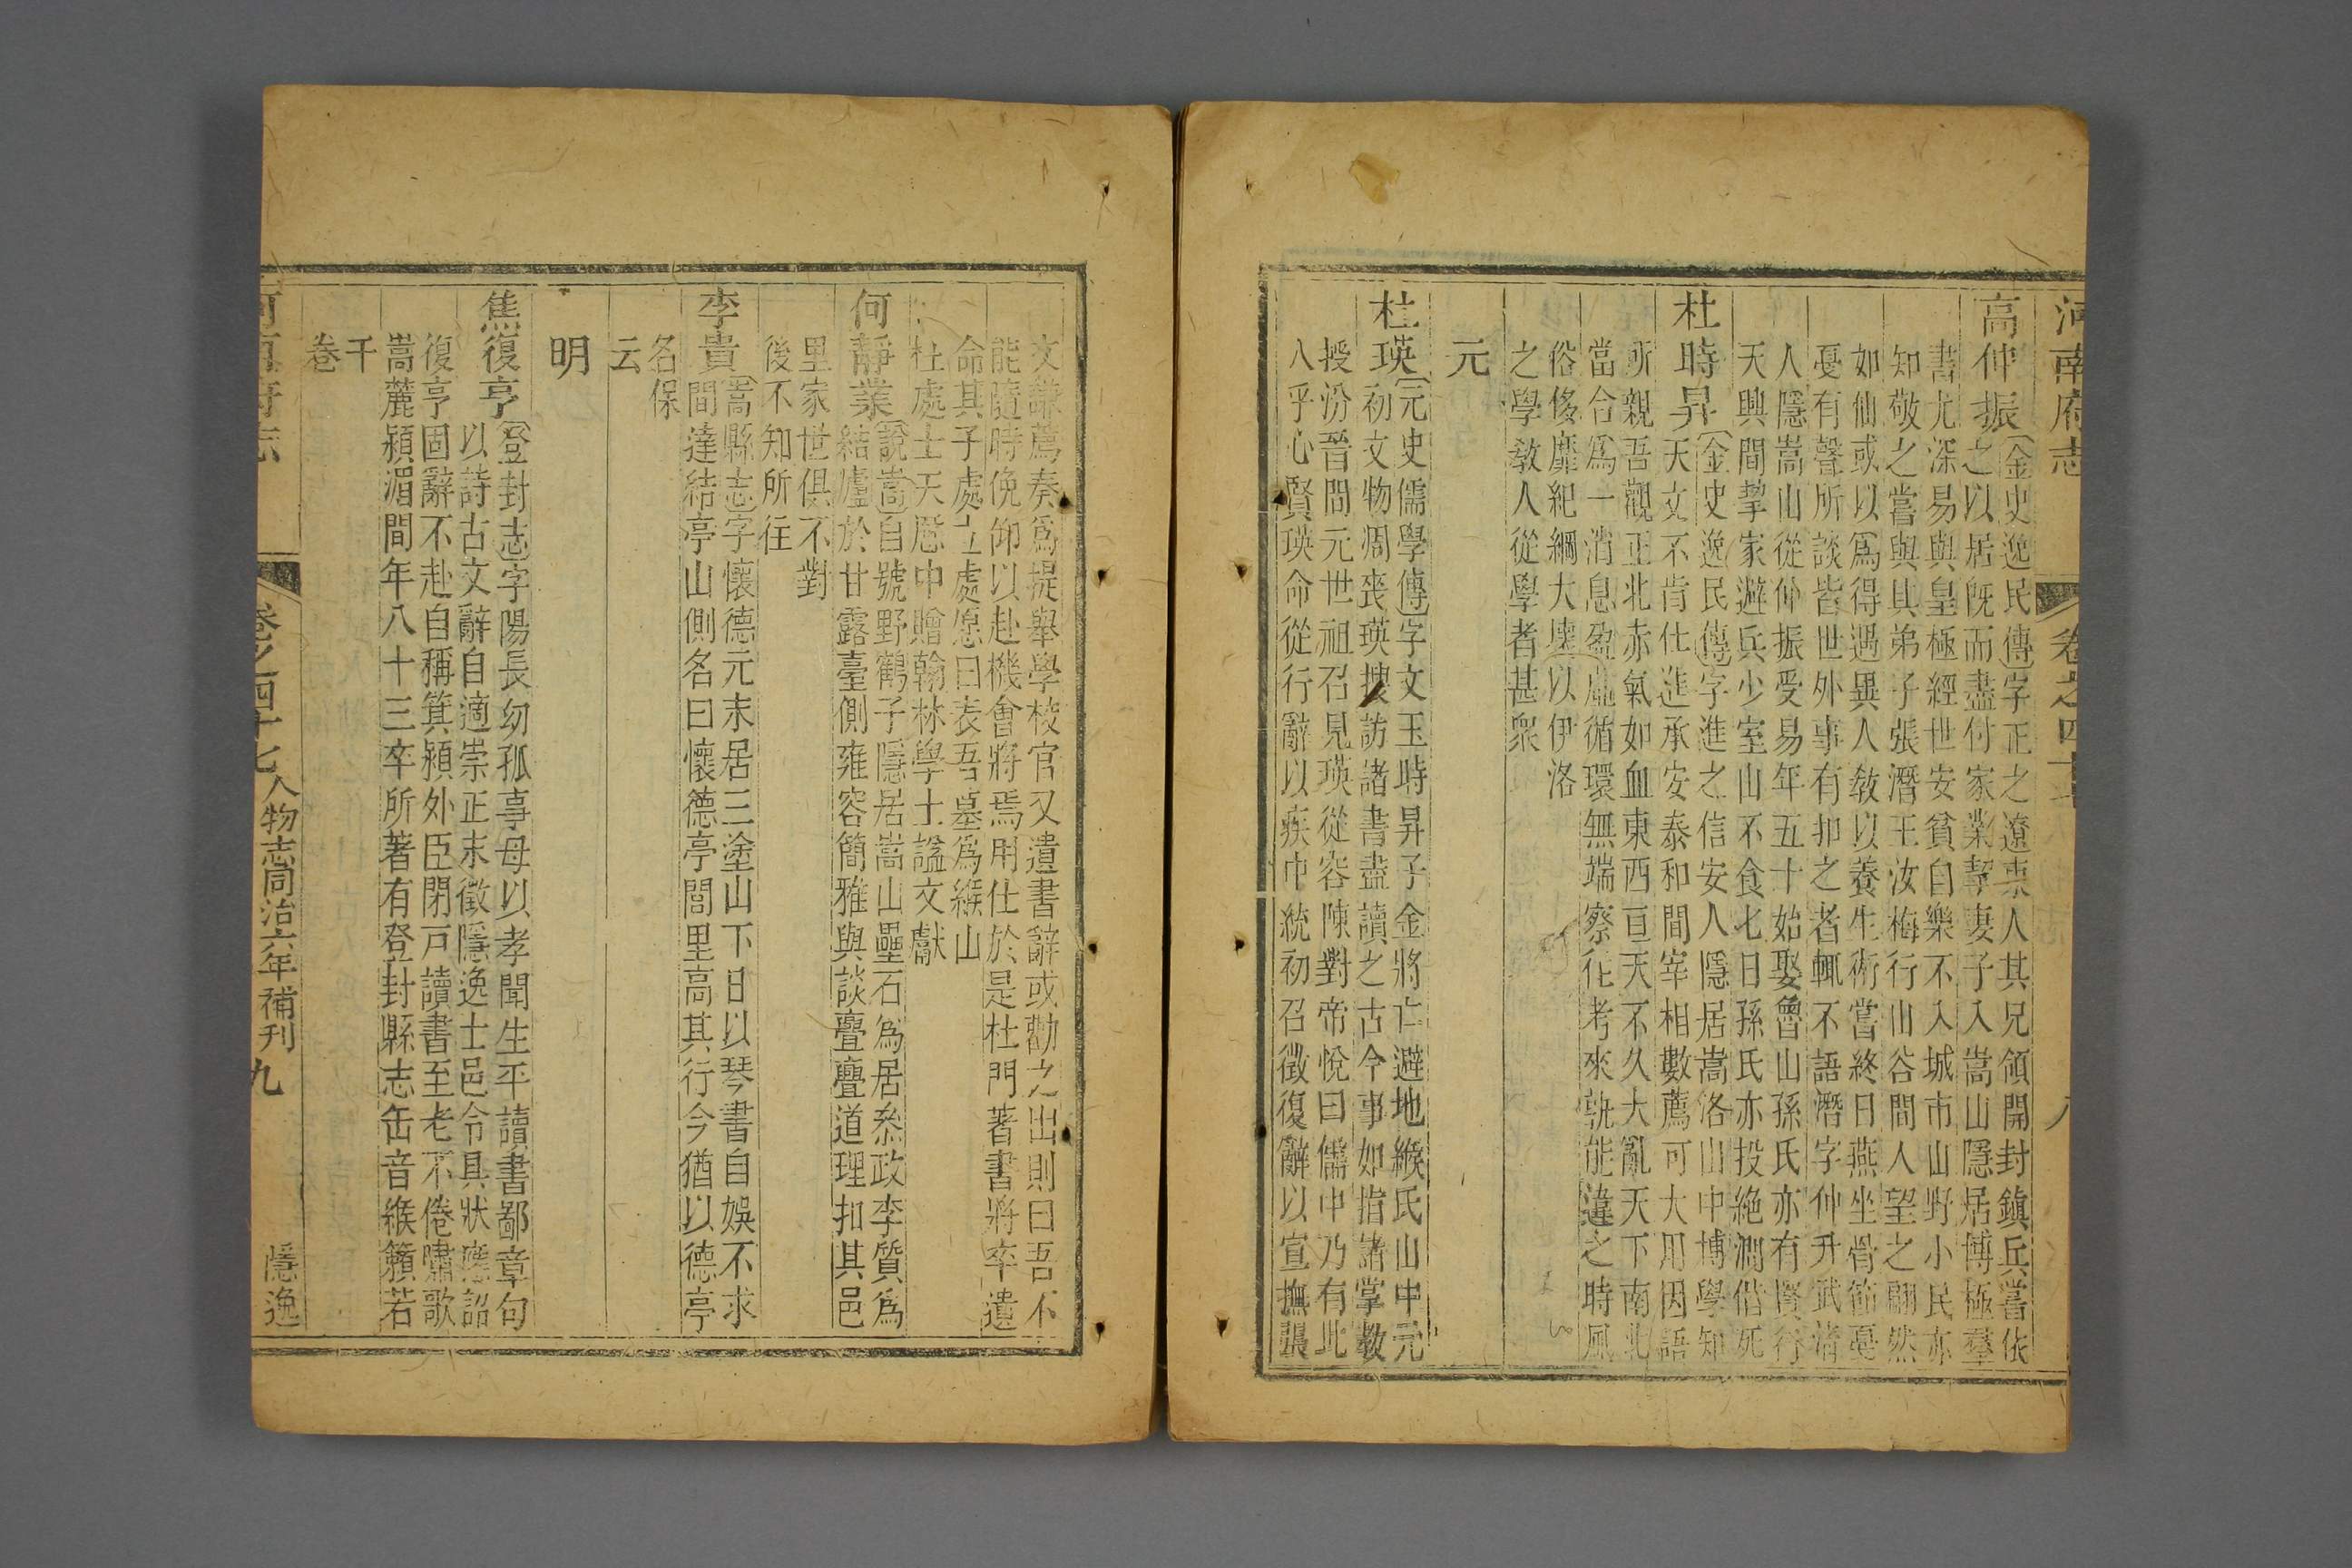 河南府志 卷之四十七 八
高仲振(金史逸民傳)字正之遼東人其兄領開封鎮兵嘗依
之以居既而盡付家業挈妻子入嵩山隱居博極羣
書尤深易與皇極經世安貧自樂不入城市山野小民亦
知敬之嘗與其弟子張潛王汝梅行山谷間人望之翩然
如仙或以爲得遇異人敎以養生術嘗終日燕坐骨節戞
戞有聲所談皆世外事有扣之者輒不語潛字仲升武清
人隱嵩山從仲振受易年五十始娶魯山孫氏亦有賢行
天興間挈家避兵少室山不食七日孫氏亦投絶澗偕死
杜時昇(金史逸民傳)字進之信安人隱居嵩洛山中博學知
天文不肯仕進承安泰和間宰相數薦可大用因語
所親吾觀正北赤氣如血東西亘天不久大亂天下南北
當合爲一消息盈虛循環無端察往考來孰能違之時風
俗侈靡紀綱大壞以伊洛
之學敎人從學者甚衆
元
杜瑛(元史儒學傳)字文玉時昇子金將亡避地緱氏山中元
初文物凋喪瑛搜訪諸書盡讀之古今事如指諸掌敎
授汾晉間元世祖召見瑛從容陳對帝悅曰儒中乃有此
人乎心賢瑛命從行辭以疾中統初召徵復辭以宣撫張
文謙薦奏爲提舉學校官又遺書辭或勸之出則曰吾不
能隨時俛仰以赴機會將焉用仕於是杜門著書將卒遺
命其子處立處愿曰表吾墓爲緱山
杜處士天厯中贈翰林學士謚文獻
何靜業(說嵩)自號野鶴子隱居嵩山壘石爲居叅政李質爲
結廬於甘露臺側雍容簡雅與談亹亹道理扣其邑
里家世俱不對
後不知所往
李貴(嵩縣志)字懷德元末居三塗山下日以琴書自娛不求
間達結亭山側名曰懷德亭閭里高其行今猶以德亭
名保
云
明
焦復亨(登封志)字陽長幼孤事母以孝聞生平讀書鄙章句
以詩古文辭自適崇正末徵隱逸士邑令具狀應詔
復亨固辭不赴自稱箕潁外臣閉戸讀書至老不倦嘯歌
嵩麓潁湄間年八十三卒所著有登封縣志缶音緱籟若
干
卷
河南府志 卷之四十七 人物志同治六年補刊 九 隱逸